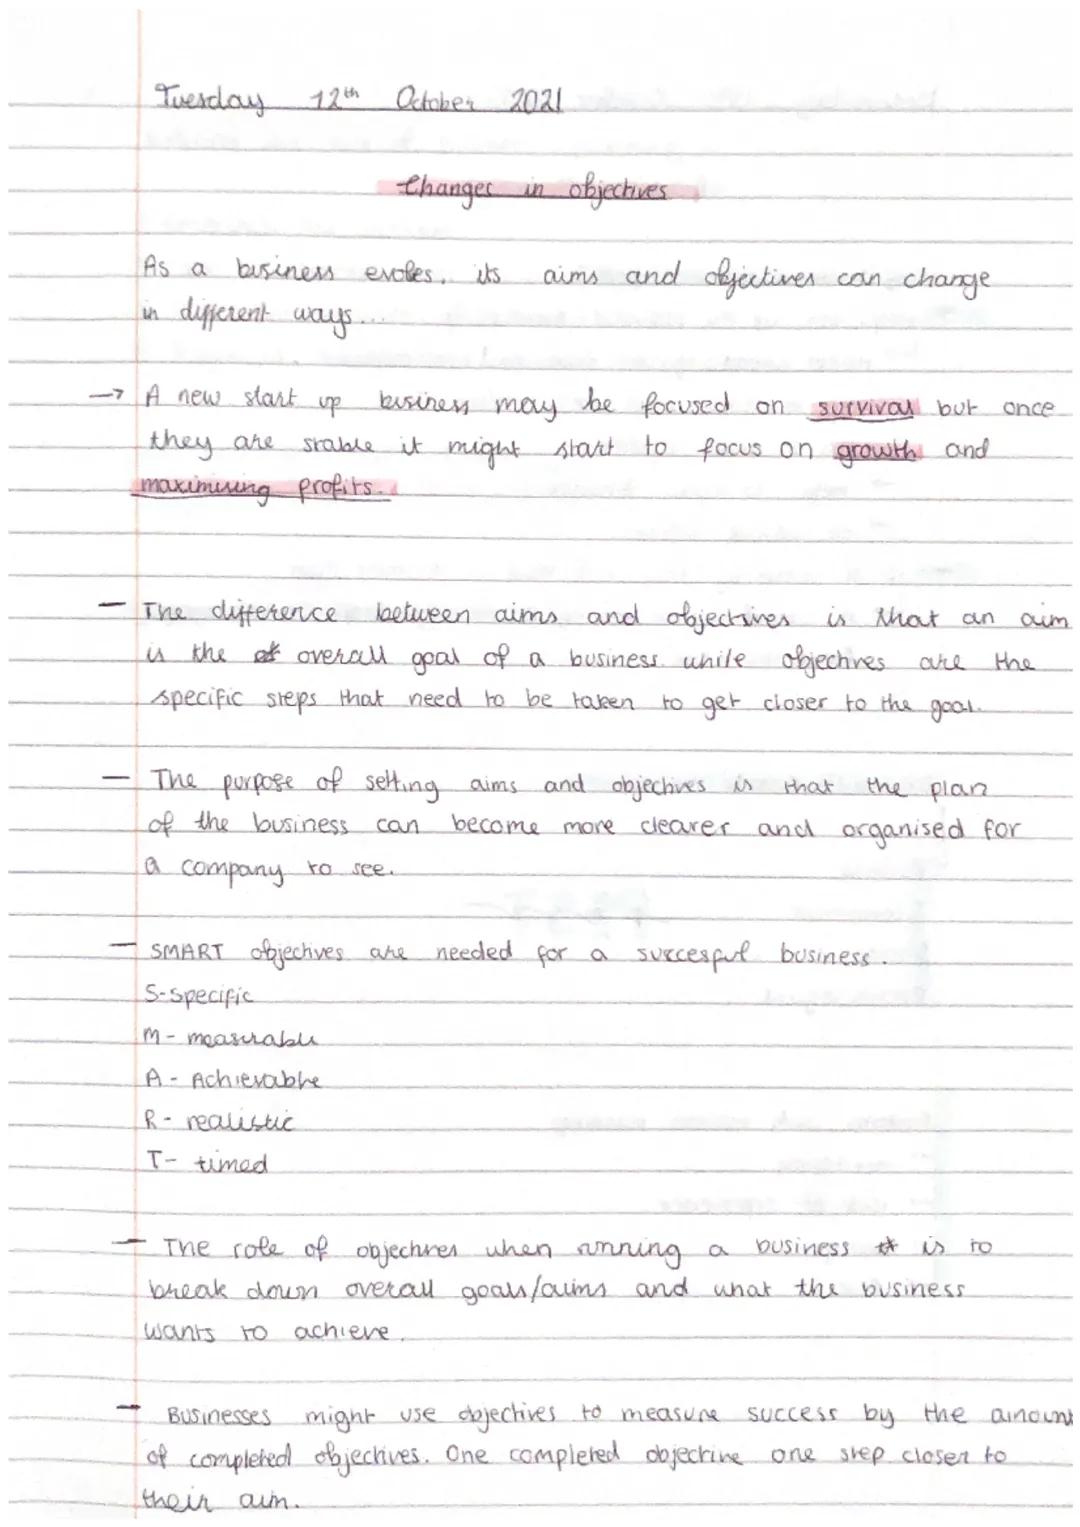 Tuesday 12th October 2021
Changes in objectives
As a business evoles. its aims and objectives can change
in different ways...
→ A new start up business may be focused on survival but once
they are stable it might start to focus on growth and
maximising profits.
- The difference between aims and objectives is that an aim
is the overall goal of a business while objectives are the
specific steps that need to be taken to get closer to the goal.
- The purpose of setting aims and objectives is that the plan
of the business can become more clearer and organised for
a company to see.
- SMART objectives are needed for a succesful business.
S-Specific
M- measurable
A- Achievable
R- realistic
T- timed
- The role of objectives when running a business is to
break down overall goals/aims and what the business
wants to achieve.
- Businesses might use objectives to measure success by the amount
of completed objectives. One completed objective one step closer to
their aim.